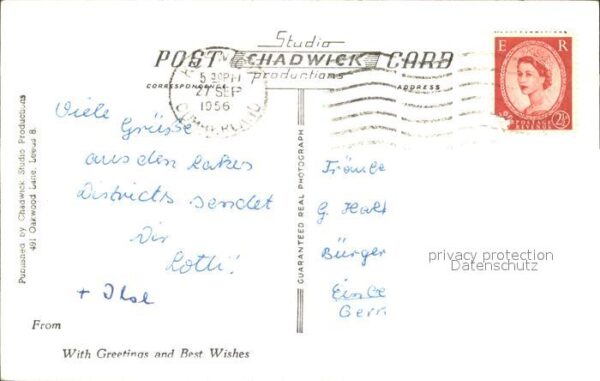 Studio
POST CHADWICK CARD
productions
CORRESPONDENCE
ADDRESS
5 30PM
27 SEP
1956
CUMBERLAND
E R
POSTAGE
REVENUE
2½D
Viele
Grüsse
aus den Lakes
Districts sendet
Dir
Lotti!
+ Ilse
G. Halt
Bürger
GUARANTEED REAL PHOTOGRAPH
Published by Chadwick Studio Productions
491 Oakwood Lane, Leeds 8.
privacy protection
Datenschutz
From
With Greetings and Best Wishes